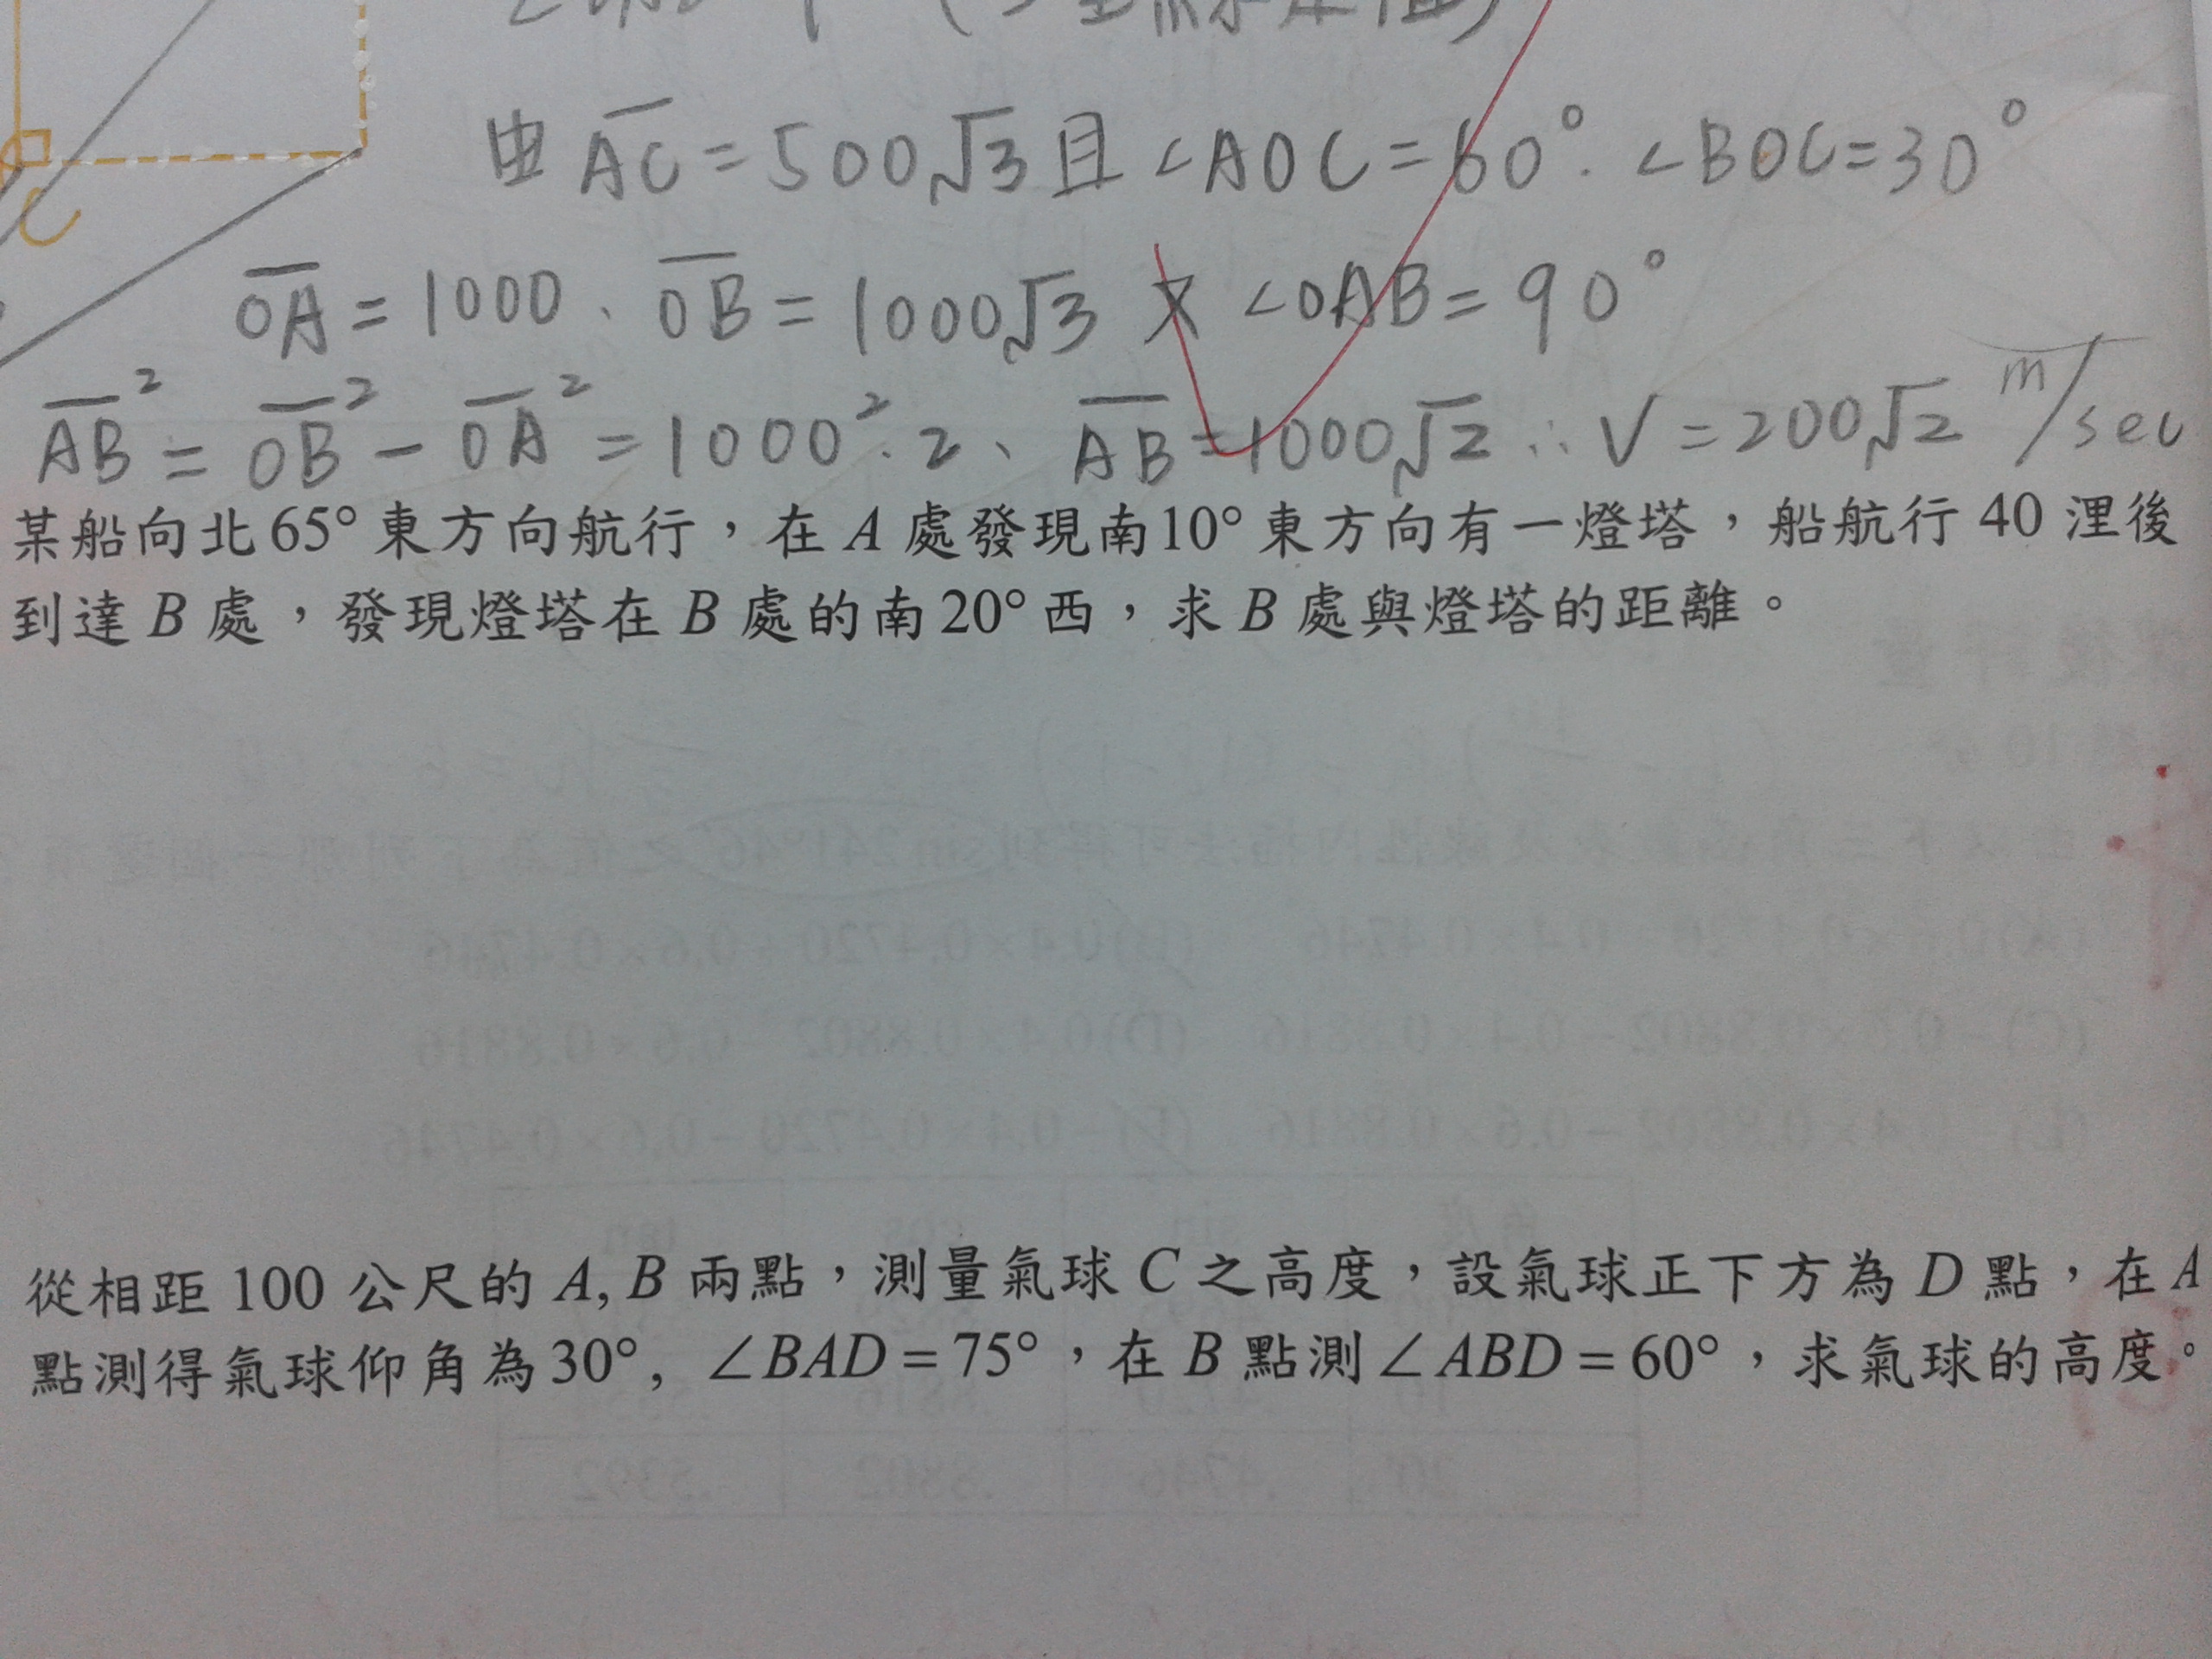 C
由 AC = 500√3 且 ∠AOC = 60°. ∠BOC = 30°
OA = 1000、OB = 1000√3 又 ∠OAB = 90°
AB² = OB² − OA² = 1000²·2、AB = 1000√2 ∴ V = 200√2 m/sec
某船向北65°東方向航行，在 A 處發現南10°東方向有一燈塔，船航行 40 浬後
到達 B 處，發現燈塔在 B 處的南20°西，求 B 處與燈塔的距離。
從相距 100 公尺的 A, B 兩點，測量氣球 C 之高度，設氣球正下方為 D 點，在 A
點測得氣球仰角為30°, ∠BAD = 75°，在 B 點測∠ABD = 60°，求氣球的高度。